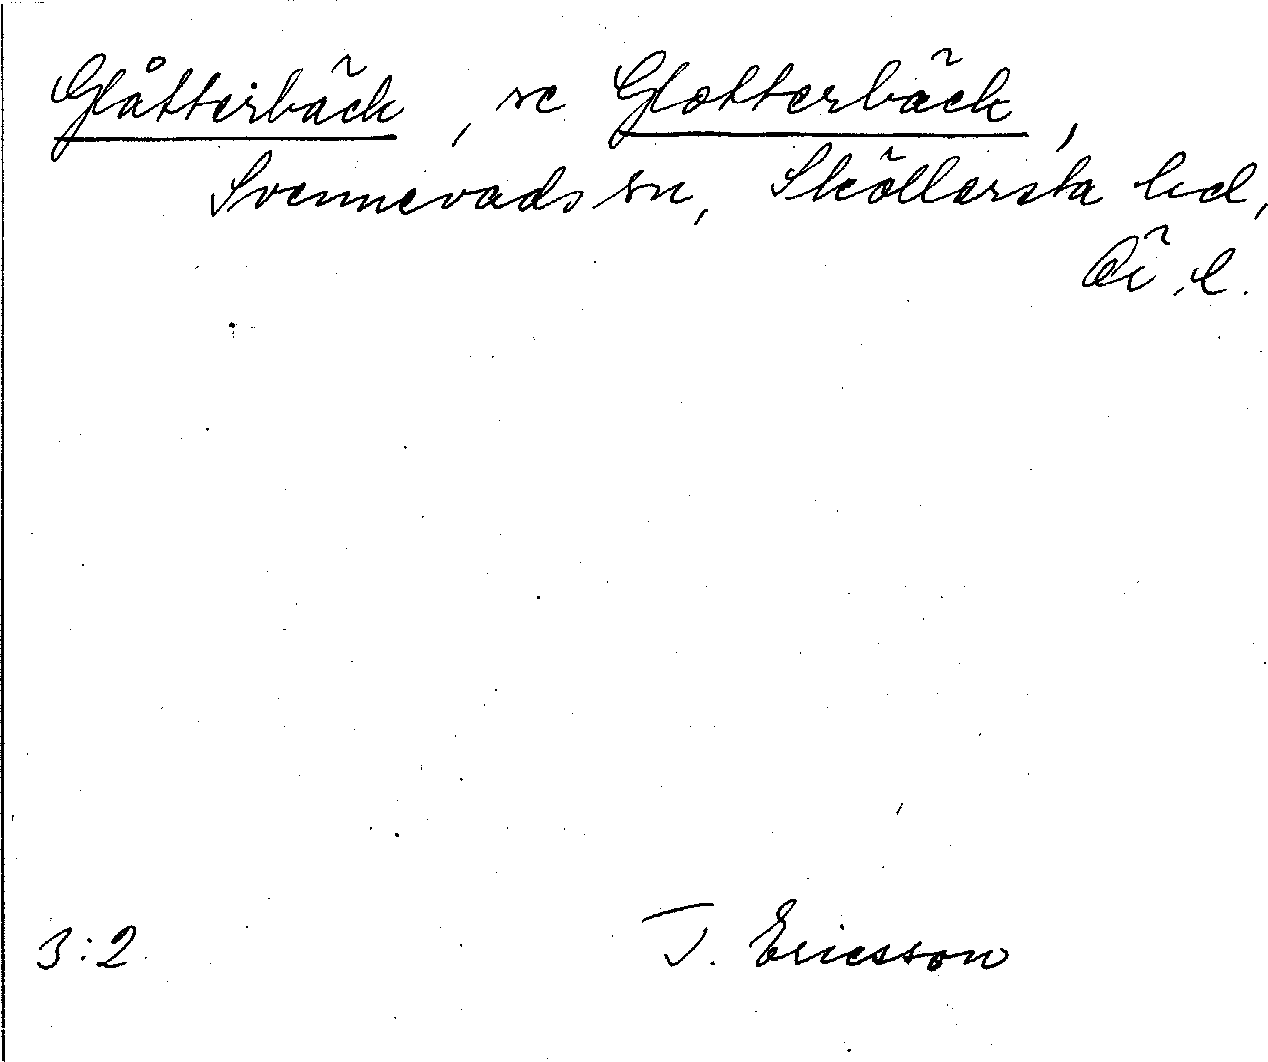 Glåtterbäck, se Glotterbäck,
Svennevads sn, Sköllersta hd,
Ör. l.
3:2 T. Ericsson